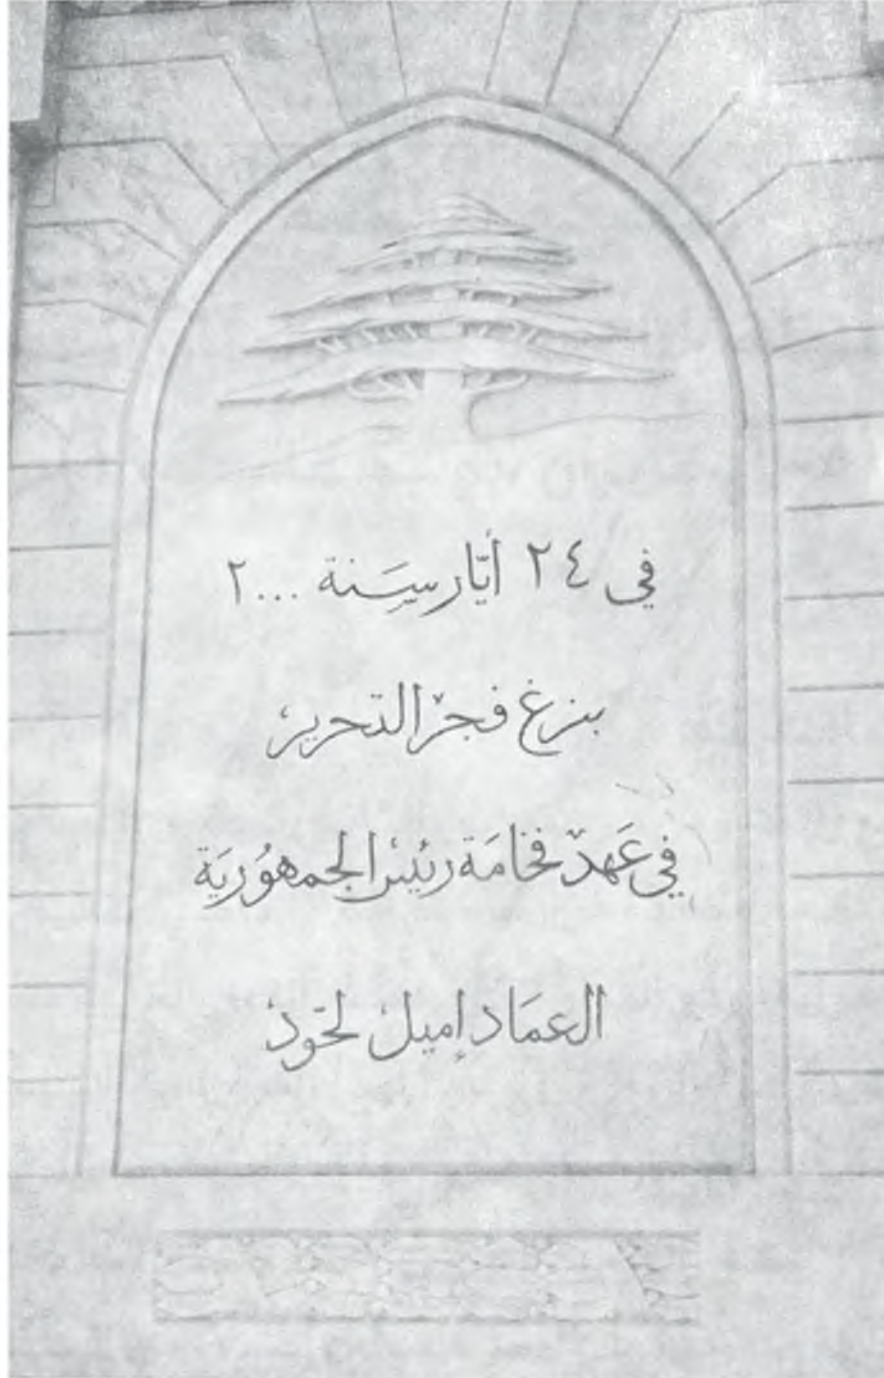 في ٢٤ أيّار سَنة ٢٠٠٠
بزغ فجر التحرير
في عَهد فخامَة رئيس الجمهُوريَة
العمَاد إميل لحّود